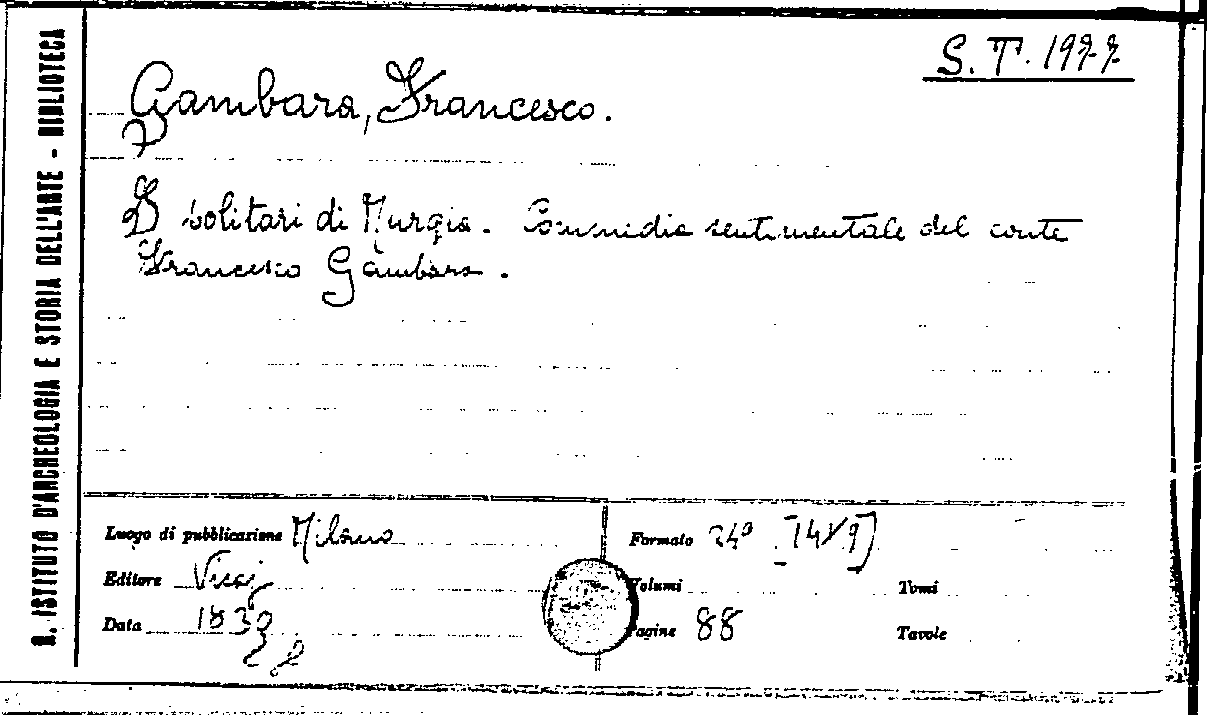 S. T. 1977
Gambara, Francesco.
I solitari di Murgia. Commedia sentimentale del conte
Francesco Gambara.
R. ISTITUTO D'ARCHEOLOGIA E STORIA DELL'ARTE - BIBLIOTECA
Luogo di pubblicazione Milano
Formato 24º [14x9]
Editore Visaj
Volumi
Tomi
Data
Pagine 88
Tavole